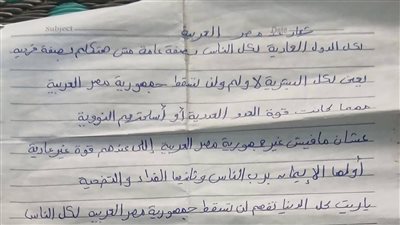 Subject
شعار مصر العربية
لكل الدول العادية لكل الناس بصفة عامة مش هتكلم بصفة فردية
يعنى لكل البشرية لا ولم ولن تسقط جمهورية مصر العربية
مهما كانت قوة العدو العددية أو أسلحتهم النووية
عشان مافيش غير جمهورية مصر العربية إللى عندهم قوة غير عادية
أولها الإيمان برب الناس وثانيها الفداء والتضحية
ياريت كل الدنيا تفهم لن تسقط جمهورية مصر العربية لكل الناس